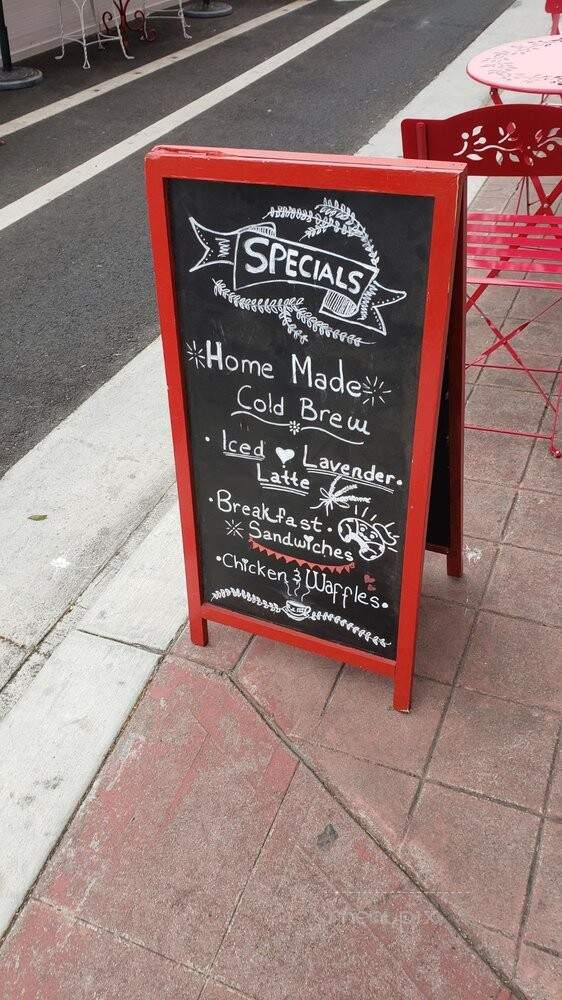 SPECIALS
Home Made
Cold Brew
• Iced Lavender •
Latte
• Breakfast •
Sandwiches
• Chicken & Waffles •
menupix